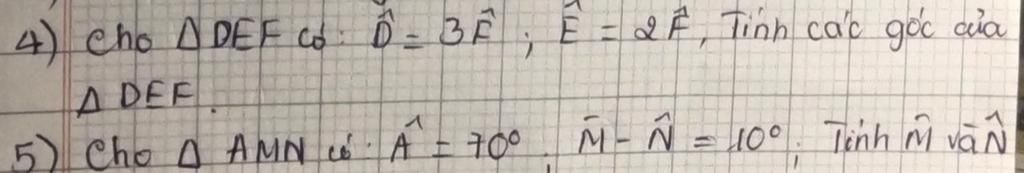 4) Cho Δ DEF có: D̂ = 3F̂ ; Ê = 2F̂, Tính các góc của
Δ DEF.
5) Cho Δ AMN có: Â = 70°, M̂ - N̂ = 10°; Tính M̂ và N̂